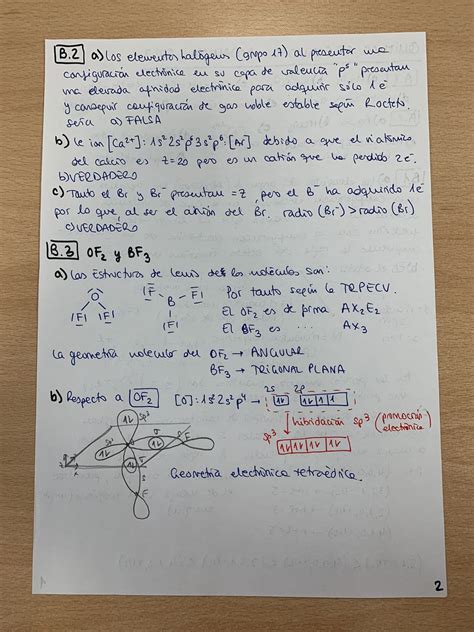 B.2 a) Los elementos halógenos (grupo 17) al presentar una
configuración electrónica en su capa de valencia "p⁵" presentan
una elevada afinidad electrónica para adquirir sólo 1e⁻
y conseguir configuración de gas noble estable según R.octeto.
sería a) FALSA
b) le ion [Ca²⁺]: 1s²2s²p⁶3s²p⁶ [Ar] debido a que el nº atómico
del calcio es Z=20 pero es un catión que ha perdido 2e⁻.
b) VERDADERO
c) Tanto el Br y Br⁻ presentan =Z, pero el B⁻ ha adquirido 1e⁻
por lo que al ser el anión del Br. radio (Br⁻) > radio (Br)
c) VERDADERO
B.3 OF₂ y BF₃
a) Las Estructura de lewis de las moléculas son:
O F F
F F B Por tanto según la TRPECV.
F El OF₂ es de forma AX₂E₂
El BF₃ es ... AX₃
La geometría molecular del OF₂ → ANGULAR
BF₃ → TRIGONAL PLANA
b) Respecto a OF₂ [O]: 1s²2s²p⁴ → 2s 2p
hibridación sp³ (promoción electrónica)
sp³
sp³ sp³ σ F
σ F
Geometría electrónica tetraédrica.
2